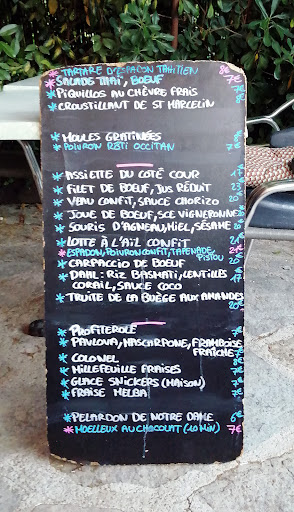 * TARTARE D'ESPADON TAHITIEN 8€
* SALADE THAÏ, BOEUF 7€
* PIQUILLOS AU CHÈVRE FRAIS 7€
* CROUSTILLANT DE ST MARCELIN 8€
* MOULES GRATINÉES
* POIVRON RÔTI OCCITAN
* ASSIETTE DU COTÉ COUR
* FILET DE BOEUF, JUS RÉDUIT
* VEAU CONFIT, SAUCE CHORIZO
* JOUE DE BOEUF, SCE VIGNERONNE
* SOURIS D'AGNEAU, MIEL, SÉSAME
* LOTTE À L'AIL CONFIT
* ESPADON, POIVRON CONFIT, TAPENADE, PISTOU
* CARPACCIO DE BOEUF
* DAHL: RIZ BASMATI, LENTILLES
CORAIL, SAUCE COCO
* TRUITE DE LA BUÈGE AUX AMANDES
* PROFITEROLE
* PAVLOVA, MASCARPONE, FRAMBOISE
FRAÎCHE 7€
* COLONEL
* MILLEFEUILLE FRAISES 7€
* GLACE SNICKERS (MAISON) 7€
* FRAISE MELBA 7€
* PELARDON DE NOTRE DAME 6€
* MOELLEUX AU CHOCOLAT (10 MIN) 7€